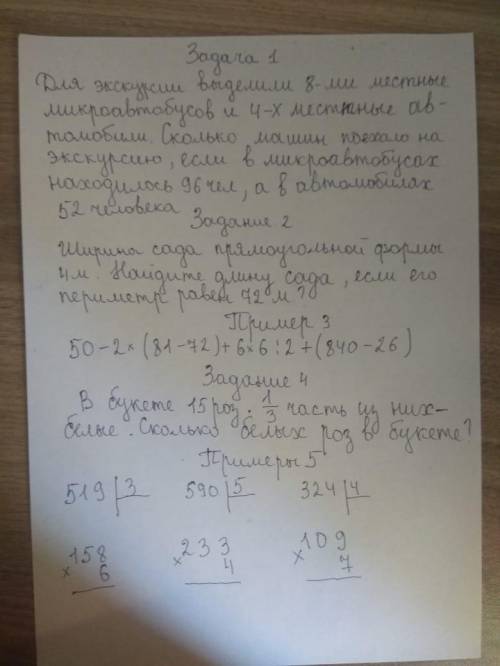 Задача 1
Для экскурсии выделили 8-ми местные
микроавтобусов и 4-х местные ав-
томобили. Сколько машин поехало на
экскурсию, если в микроавтобусах
находилось 96 чел, а в автомобилях
52 человека
Задание 2
Ширина сада прямоугольной формы
4м. Найдите длину сада, если его
периметр равен 72 м?
Пример 3
50-2×(81-72)+6×6:2+(840-26)
Задание 4
В букете 15 роз. 1/3 часть из них-
белые. Сколько белых роз в букете?
Примеры 5
519 3 590 5 324 4
158 233 109
× 6 × 4 × 7